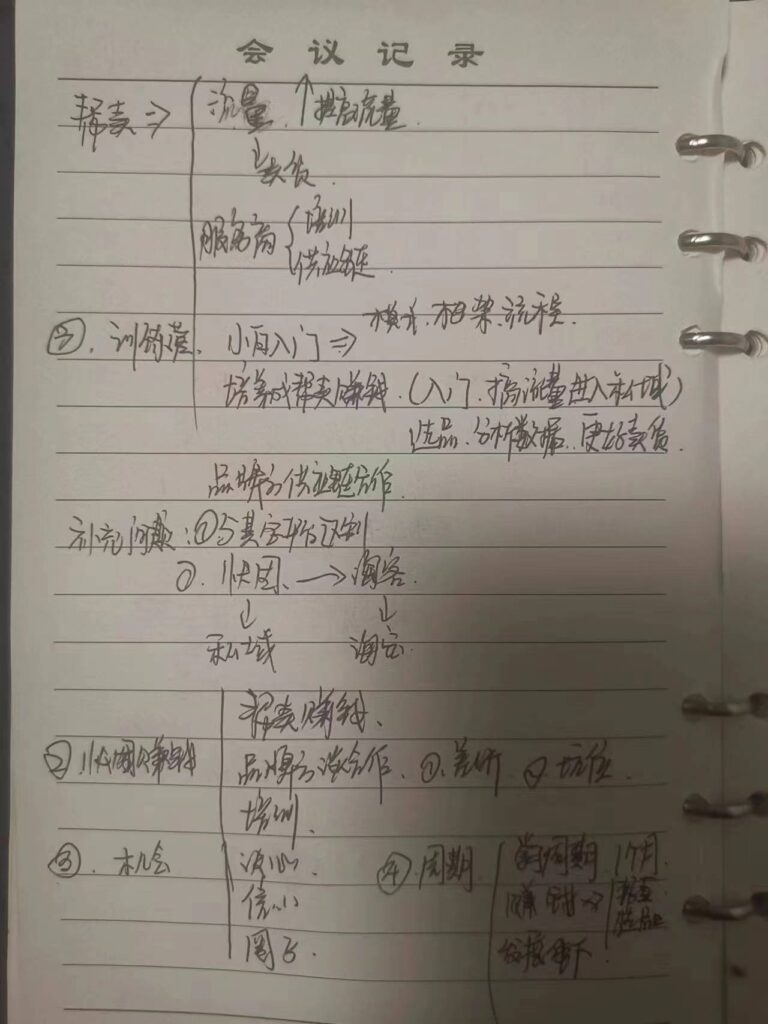 会议记录
帮卖⇒ 流量 ↑提高流量
↓卖货.
服务商 培训
供应链
模式.框架.流程.
②.训练营、小白入门⇒
培养成帮卖赚钱.(入门.搞流量进入私域)
选品.分析数据.更好卖货.
品牌方供应链合作.
补充问题:①与其字平台识别
②.快团、→淘客.
↓ ↓
私域 淘宝
帮卖赚钱、
②快团赚钱 品牌方谈合作.①.差价 ②坑位.
培训.
③.机会 决心. ④周期. 学习周期 1个月.
信心 赚钱⇒ 帮卖
圈子. 选品